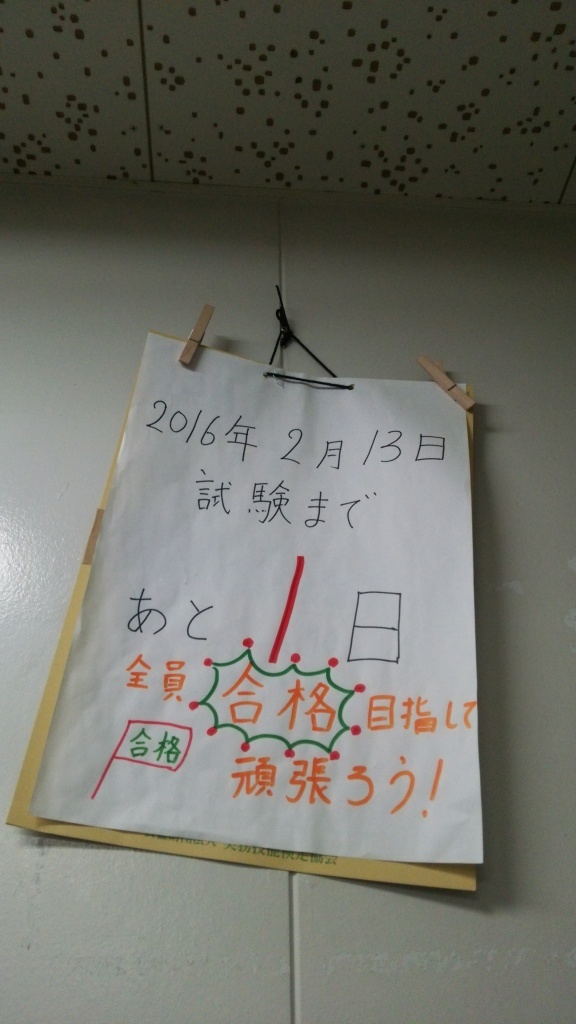 2016年 2月 13日
試験まで
あと 1 日
全員 合格 目指して
合格
頑張ろう!
実務技能検定協会